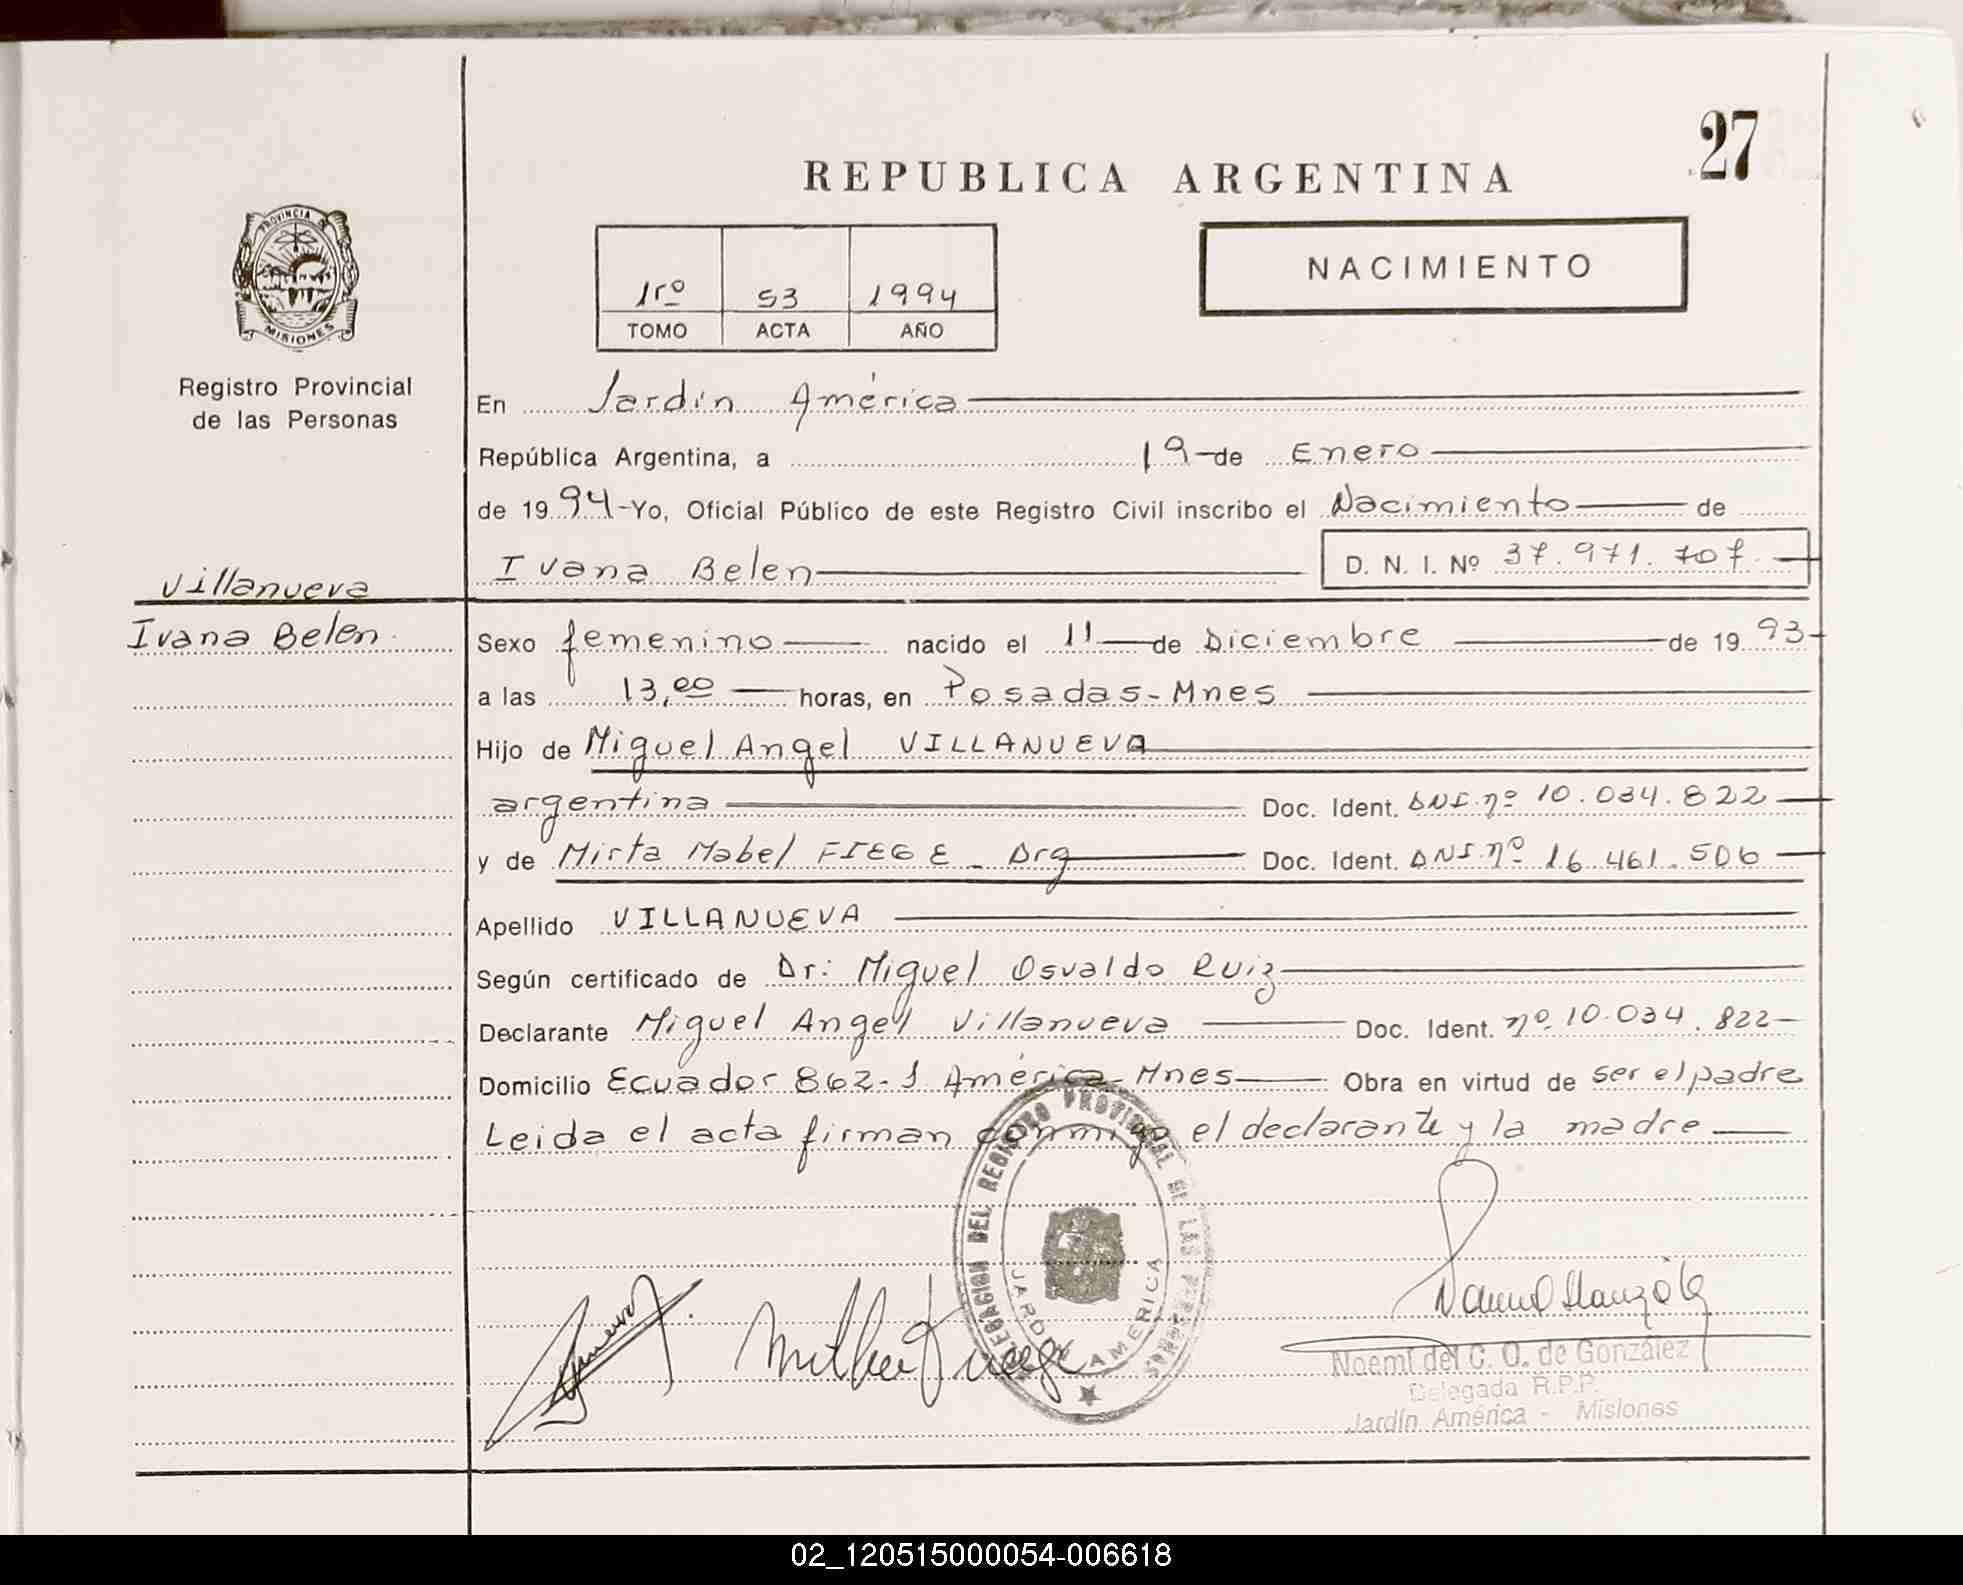 27
REPUBLICA ARGENTINA
NACIMIENTO
1ro 53 1994
TOMO ACTA AÑO
PROVINCIA
MISIONES
Registro Provincial
de las Personas
En Jardín América
República Argentina, a 19 de Enero
de 1994 Yo, Oficial Público de este Registro Civil inscribo el Nacimiento de
Ivana Belen D. N. I. Nº 37.971.707
Villanueva
Ivana Belen
Sexo femenino nacido el 11 de Diciembre de 1993
a las 13,00 horas, en Posadas-Mnes
Hijo de Miguel Angel VILLANUEVA
argentina Doc. Ident. DNI. nº 10.034.822
y de Mirta Mabel FIEGE - Arg Doc. Ident. DNI. nº 16.461.506
Apellido VILLANUEVA
Según certificado de Dr: Miguel Osvaldo Ruiz
Declarante Miguel Angel Villanueva Doc. Ident. nº 10.034.822
Domicilio Ecuador 862-J América-Mnes Obra en virtud de ser el padre
Leida el acta firman conmigo el declarante y la madre
DELEGACION DEL REGISTRO PROVINCIAL DE LAS PERSONAS
JARDIN AMERICA
Noemí del C. O. de González
Delegada R.P.P.
Jardín América - Misiones
02_120515000054-006618